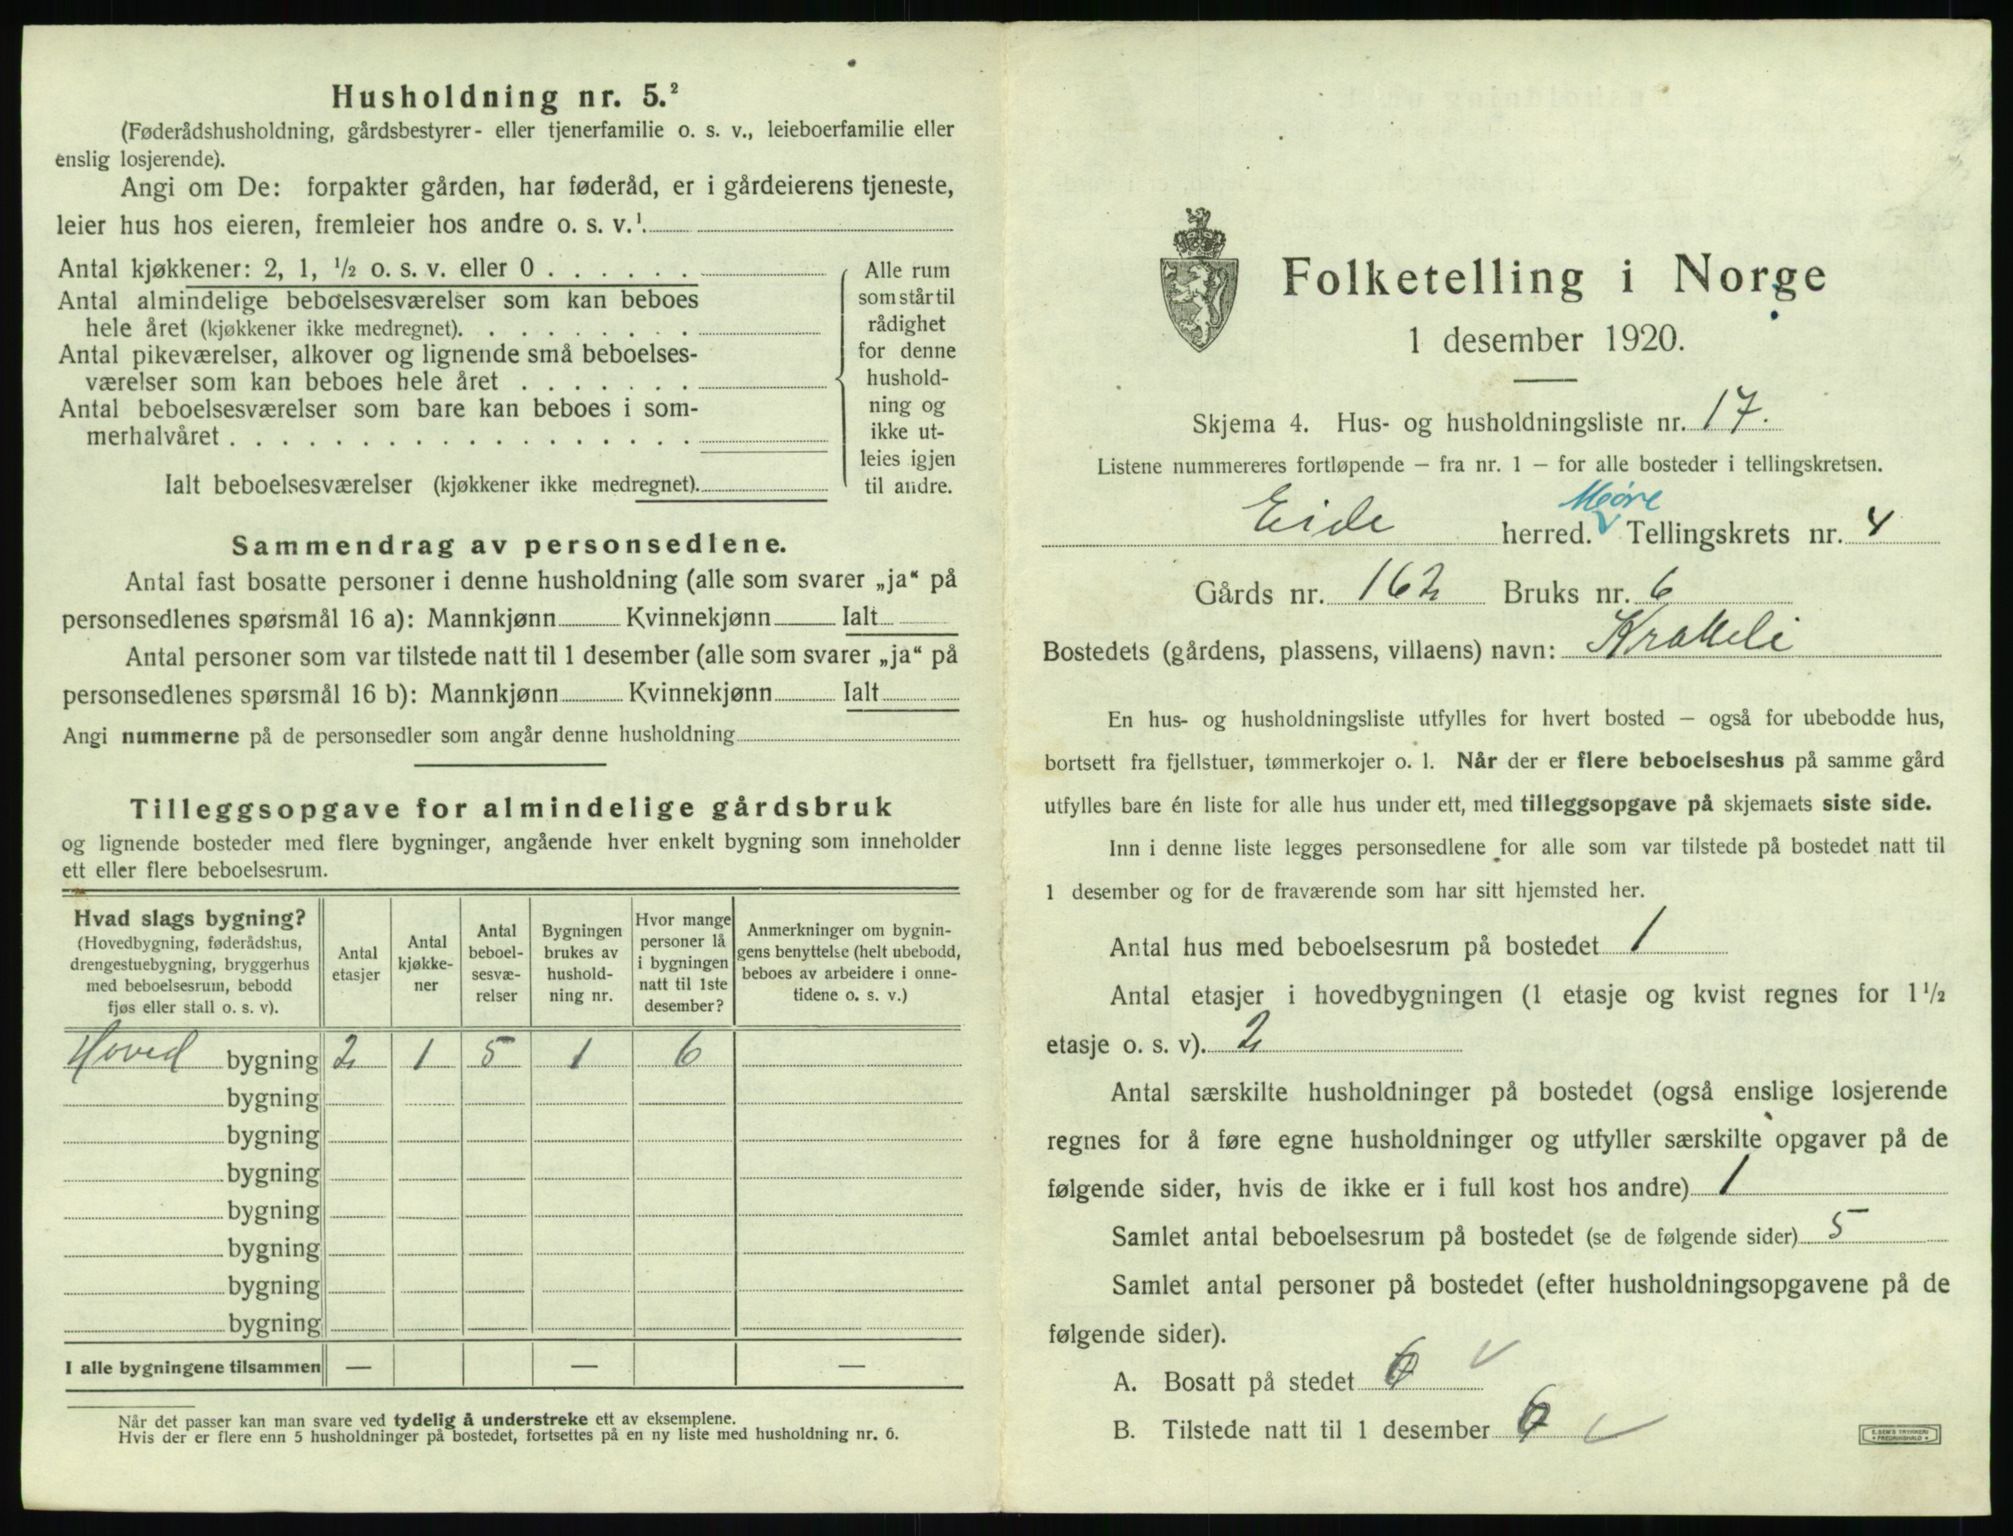 Husholdning nr. 5.²
(Føderådshusholdning, gårdsbestyrer- eller tjenerfamilie o. s. v., leieboerfamilie eller
enslig losjerende).
Angi om De: forpakter gården, har føderåd, er i gårdeierens tjeneste,
leier hus hos eieren, fremleier hos andre o. s. v.¹
Antal kjøkkener: 2, 1, ½ o. s. v. eller 0 . . . . . .
Antal almindelige beboelsesværelser som kan beboes
hele året (kjøkkener ikke medregnet). . . . . . . . .
Antal pikeværelser, alkover og lignende små beboelses-
værelser som kan beboes hele året . . . . . . .
Antal beboelsesværelser som bare kan beboes i som-
merhalvåret . . . . . . . . . . . . . . . . . . .
Ialt beboelsesværelser (kjøkkener ikke medregnet).
Alle rum
som står til
rådighet
for denne
hushold-
ning og
ikke ut-
leies igjen
til andre.
Sammendrag av personsedlene.
Antal fast bosatte personer i denne husholdning (alle som svarer „ja“ på
personsedlenes spørsmål 16 a): Mannkjønn Kvinnekjønn Ialt
Antal personer som var tilstede natt til 1 desember (alle som svarer „ja“ på
personsedlenes spørsmål 16 b): Mannkjønn Kvinnekjønn Ialt
Angi nummerne på de personsedler som angår denne husholdning
Tilleggsopgave for almindelige gårdsbruk
og lignende bosteder med flere bygninger, angående hver enkelt bygning som inneholder
ett eller flere beboelsesrum.
Hvad slags bygning?
(Hovedbygning, føderådshus,
drengestuebygning, bryggerhus
med beboelsesrum, bebodd
fjøs eller stall o. s. v).
Antal
etasjer
Antal
kjøkke-
ner
Antal
beboel-
sesvæ-
relser
Bygningen
brukes av
hushold-
ning nr.
Hvor mange
personer lå
i bygningen
natt til 1ste
desember?
Anmerkninger om bygnin-
gens benyttelse (helt ubebodd,
beboes av arbeidere i onne-
tidene o. s. v.)
Hoved bygning 2 1 5 1 6
bygning
bygning
bygning
bygning
bygning
bygning
bygning
I alle bygningene tilsammen — — —
Når det passer kan man svare ved tydelig å understreke ett av eksemplene.
Hvis der er flere enn 5 husholdninger på bostedet, fortsettes på en ny liste med husholdning nr. 6.
Folketelling i Norge
1 desember 1920.
Skjema 4. Hus- og husholdningsliste nr. 17.
Listene nummereres fortløpende – fra nr. 1 – for alle bosteder i tellingskretsen.
Møre
Eide herred. Tellingskrets nr. 4
Gårds nr. 162 Bruks nr. 6
Bostedets (gårdens, plassens, villaens) navn: Krakeli
En hus- og husholdningsliste utfylles for hvert bosted – også for ubebodde hus,
bortsett fra fjellstuer, tømmerkojer o. l. Når der er flere beboelseshus på samme gård
utfylles bare én liste for alle hus under ett, med tilleggsopgave på skjemaets siste side.
Inn i denne liste legges personsedlene for alle som var tilstede på bostedet natt til
1 desember og for de fraværende som har sitt hjemsted her.
Antal hus med beboelsesrum på bostedet 1
Antal etasjer i hovedbygningen (1 etasje og kvist regnes for 1½
etasje o. s. v). 2
Antal særskilte husholdninger på bostedet (også enslige losjerende
regnes for å føre egne husholdninger og utfyller særskilte opgaver på de
følgende sider, hvis de ikke er i full kost hos andre) 1
Samlet antal beboelsesrum på bostedet (se de følgende sider) 5
Samlet antal personer på bostedet (efter husholdningsopgavene på de
følgende sider).
A. Bosatt på stedet 6
B. Tilstede natt til 1 desember 6
E. SEM'S TRYKKERI
FREDRIKSHALD